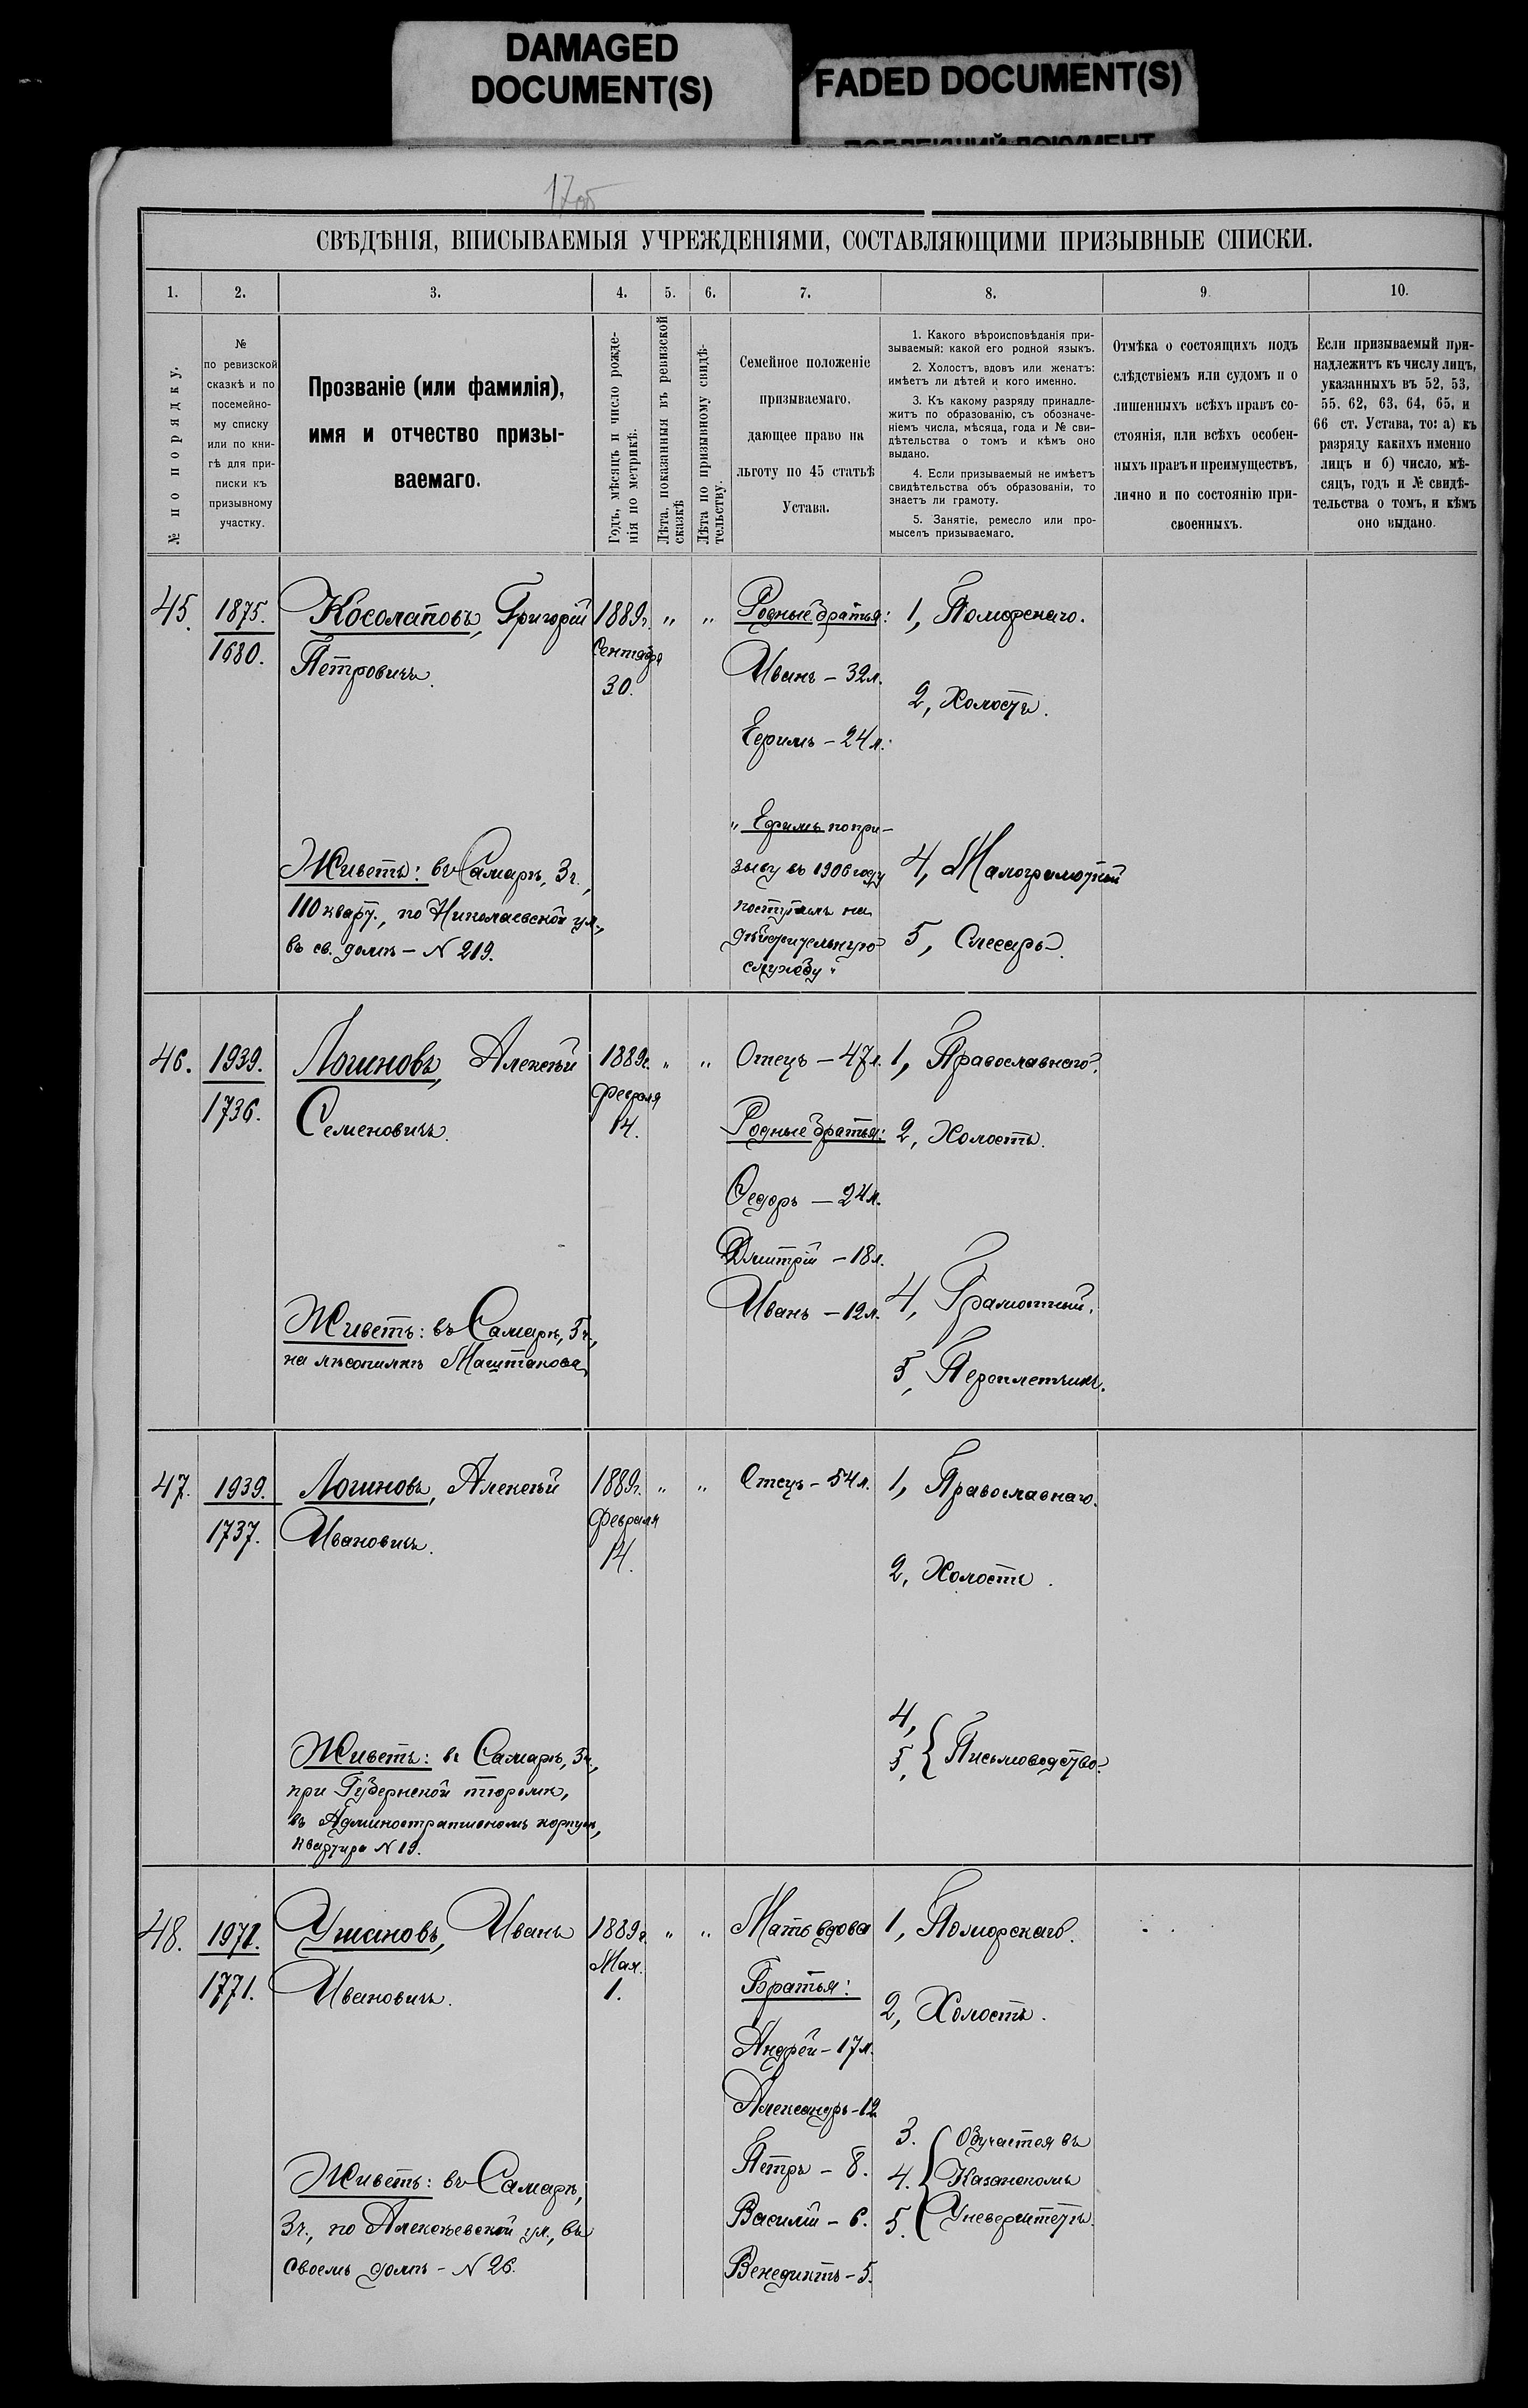 DAMAGED
DOCUMENT(S)
FADED DOCUMENT(S)
17об
СВѢДѢНІЯ, ВПИСЫВАЕМЫЯ УЧРЕЖДЕНІЯМИ, СОСТАВЛЯЮЩИМИ ПРИЗЫВНЫЕ СПИСКИ.
1. 2. 3. 4. 5. 6. 7. 8. 9. 10.
№ по порядку.
№
по ревизской
сказкѣ и по
посемейно-
му списку
или по кни-
гѣ для при-
писки къ
призывному
участку.
Прозваніе (или фамилія),
имя и отчество призы-
ваемаго.
Годъ, мѣсяцъ и число рожде-
нія по метрикѣ.
Лѣта, показанныя въ ревизской
сказкѣ
Лѣта по призывному свидѣ-
тельству.
Семейное положеніе
призываемаго,
дающее право на
льготу по 45 статьѣ
Устава.
1. Какого вѣроисповѣданія при-
зываемый: какой его родной языкъ.
2. Холостъ, вдовъ или женатъ:
имѣетъ ли дѣтей и кого именно.
3. Къ какому разряду принадле-
житъ по образованію, съ обозначе-
ніемъ числа, мѣсяца, года и № сви-
дѣтельства о томъ и кѣмъ оно
выдано.
4. Если призываемый не имѣетъ
свидѣтельства объ образованіи, то
знаетъ ли грамоту.
5. Занятіе, ремесло или про-
мыселъ призываемаго.
Отмѣка о состоящихъ подъ
слѣдствіемъ или судомъ и о
лишенныхъ всѣхъ правъ со-
стоянія, или всѣхъ особен-
ныхъ правъ и преимуществъ,
лично и по состоянію при-
своенныхъ.
Если призываемый при-
надлежитъ къ числу лицъ,
указанныхъ въ 52, 53,
55, 62, 63, 64, 65, и
66 ст. Устава, то: а) къ
разряду какихъ именно
лицъ и б) число, мѣ-
сяцъ, годъ и № свидѣ-
тельства о томъ, и кѣмъ
оно выдано.
45.
1875.
1680.
Косолаповъ, Григорій
Петровичъ.
Живетъ: въ Самарѣ, 3ч.,
110 кварт., по Николаевской ул.,
въ св. домѣ – N 219.
1889г.
Сентября
30.
" "
Родные братья:
Иванъ – 32л.
Ефимъ – 24л.
„ Ефимъ по при-
зыву въ 1906 году
поступилъ на
дѣйствительную
службу "
1, Поморскаго.
2, Холостъ.
4, Малограмотный
5, Слесарь.
46.
1939.
1736.
Логиновъ, Алексѣй
Семеновичъ.
Живетъ: въ Самарѣ, 5ч.,
на лѣсопилкѣ Маштакова
1889г.
Февраля
14.
" "
Отецъ – 47л.
Родные братья:
Ѳедоръ – 24л.
Дмитрій – 18л.
Иванъ – 12л.
1, Православнаго.
2, Холостъ.
4, Грамотный.
5, Переплетчикъ.
47.
1939.
1737.
Логиновъ, Алексѣй
Ивановичъ.
Живетъ: въ Самарѣ, 3ч.,
при Губернской тюрьмѣ,
въ Административномъ корпусѣ,
квартира N 19.
1889г.
Февраля
14.
" "
Отецъ – 54л.
1, Православнаго.
2, Холостъ.
4,
5, { Письмоводство.
48.
1971.
1771.
Ушановъ, Иванъ
Ивановичъ.
Живетъ: въ Самарѣ,
3ч., по Алексѣевской ул., въ
своемъ домѣ – N 26.
1889г.
Мая.
1.
" "
Мать вдова
Братья:
Андрей – 17л.
Александръ – 12
Петръ – 8.
Василій – 6.
Венедиктъ – 5.
1, Поморскаго.
2, Холостъ.
3. Обучается въ
4. Казанскомъ
5. Университетѣ.